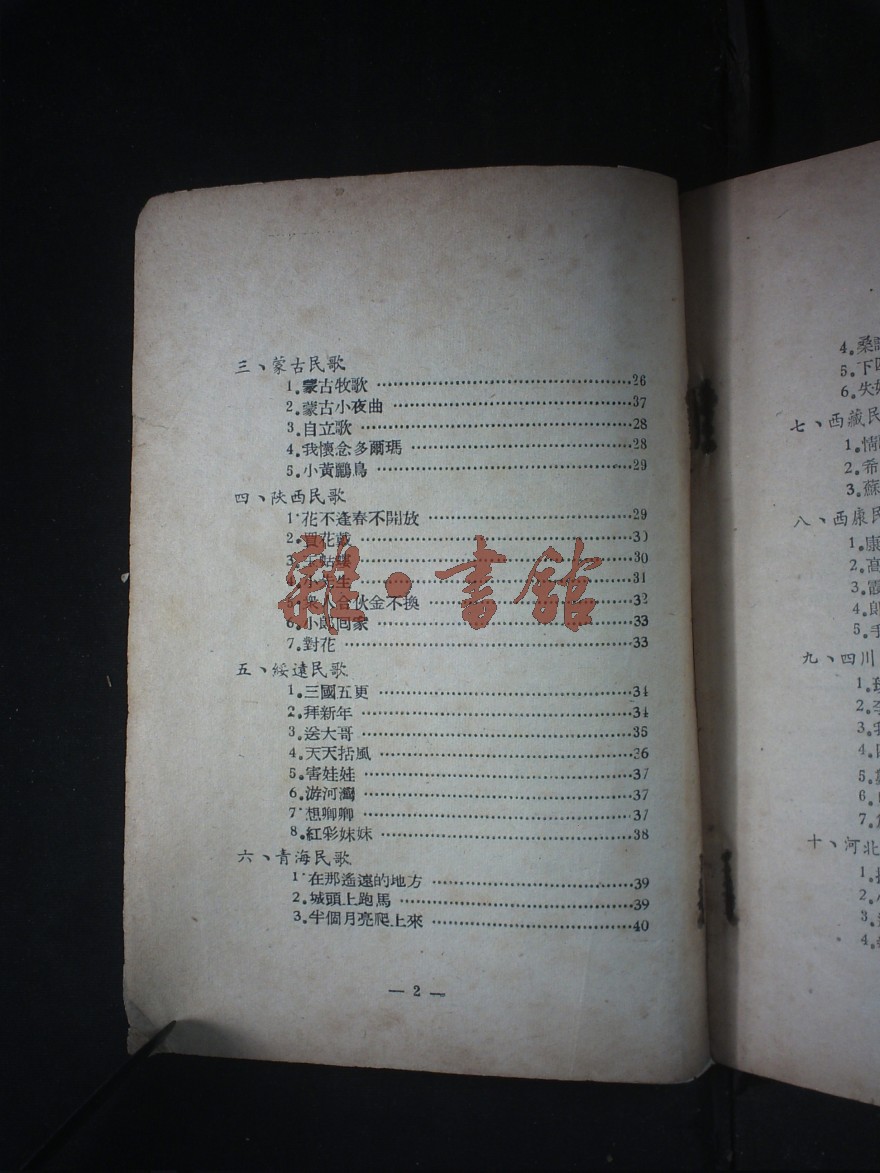 三、蒙古民歌
1.蒙古牧歌……26
2.蒙古小夜曲……37
3.自立歌……28
4.我懷念多爾瑪……28
5.小黃鸝鳥……29
四、陝西民歌
1.花不逢春不開放……29
2.買花戴……30
3.……30
4.小先生……31
5.衆人合伙金不換……32
6.小郎回家……33
7.對花……33
五、綏遠民歌
1.三國五更……34
2.拜新年……34
3.送大哥……35
4.天天括風……36
5.害娃娃……37
6.游河灣……37
7.想卿卿……37
8.紅彩妹妹……38
六、青海民歌
1.在那遙遠的地方……39
2.城頭上跑馬……39
3.半個月亮爬上來……40
— 2 —
雜·書館
4.桑
5.下
6.失
七、西藏民
1.情
2.希
3.蘇
八、西康民
1.康
2.高
3.霞
4.郎
5.手
九、四川
1.
2.李
3.我
4.
5.
6.
7.
十、河北
1.
2.小
3.
4.